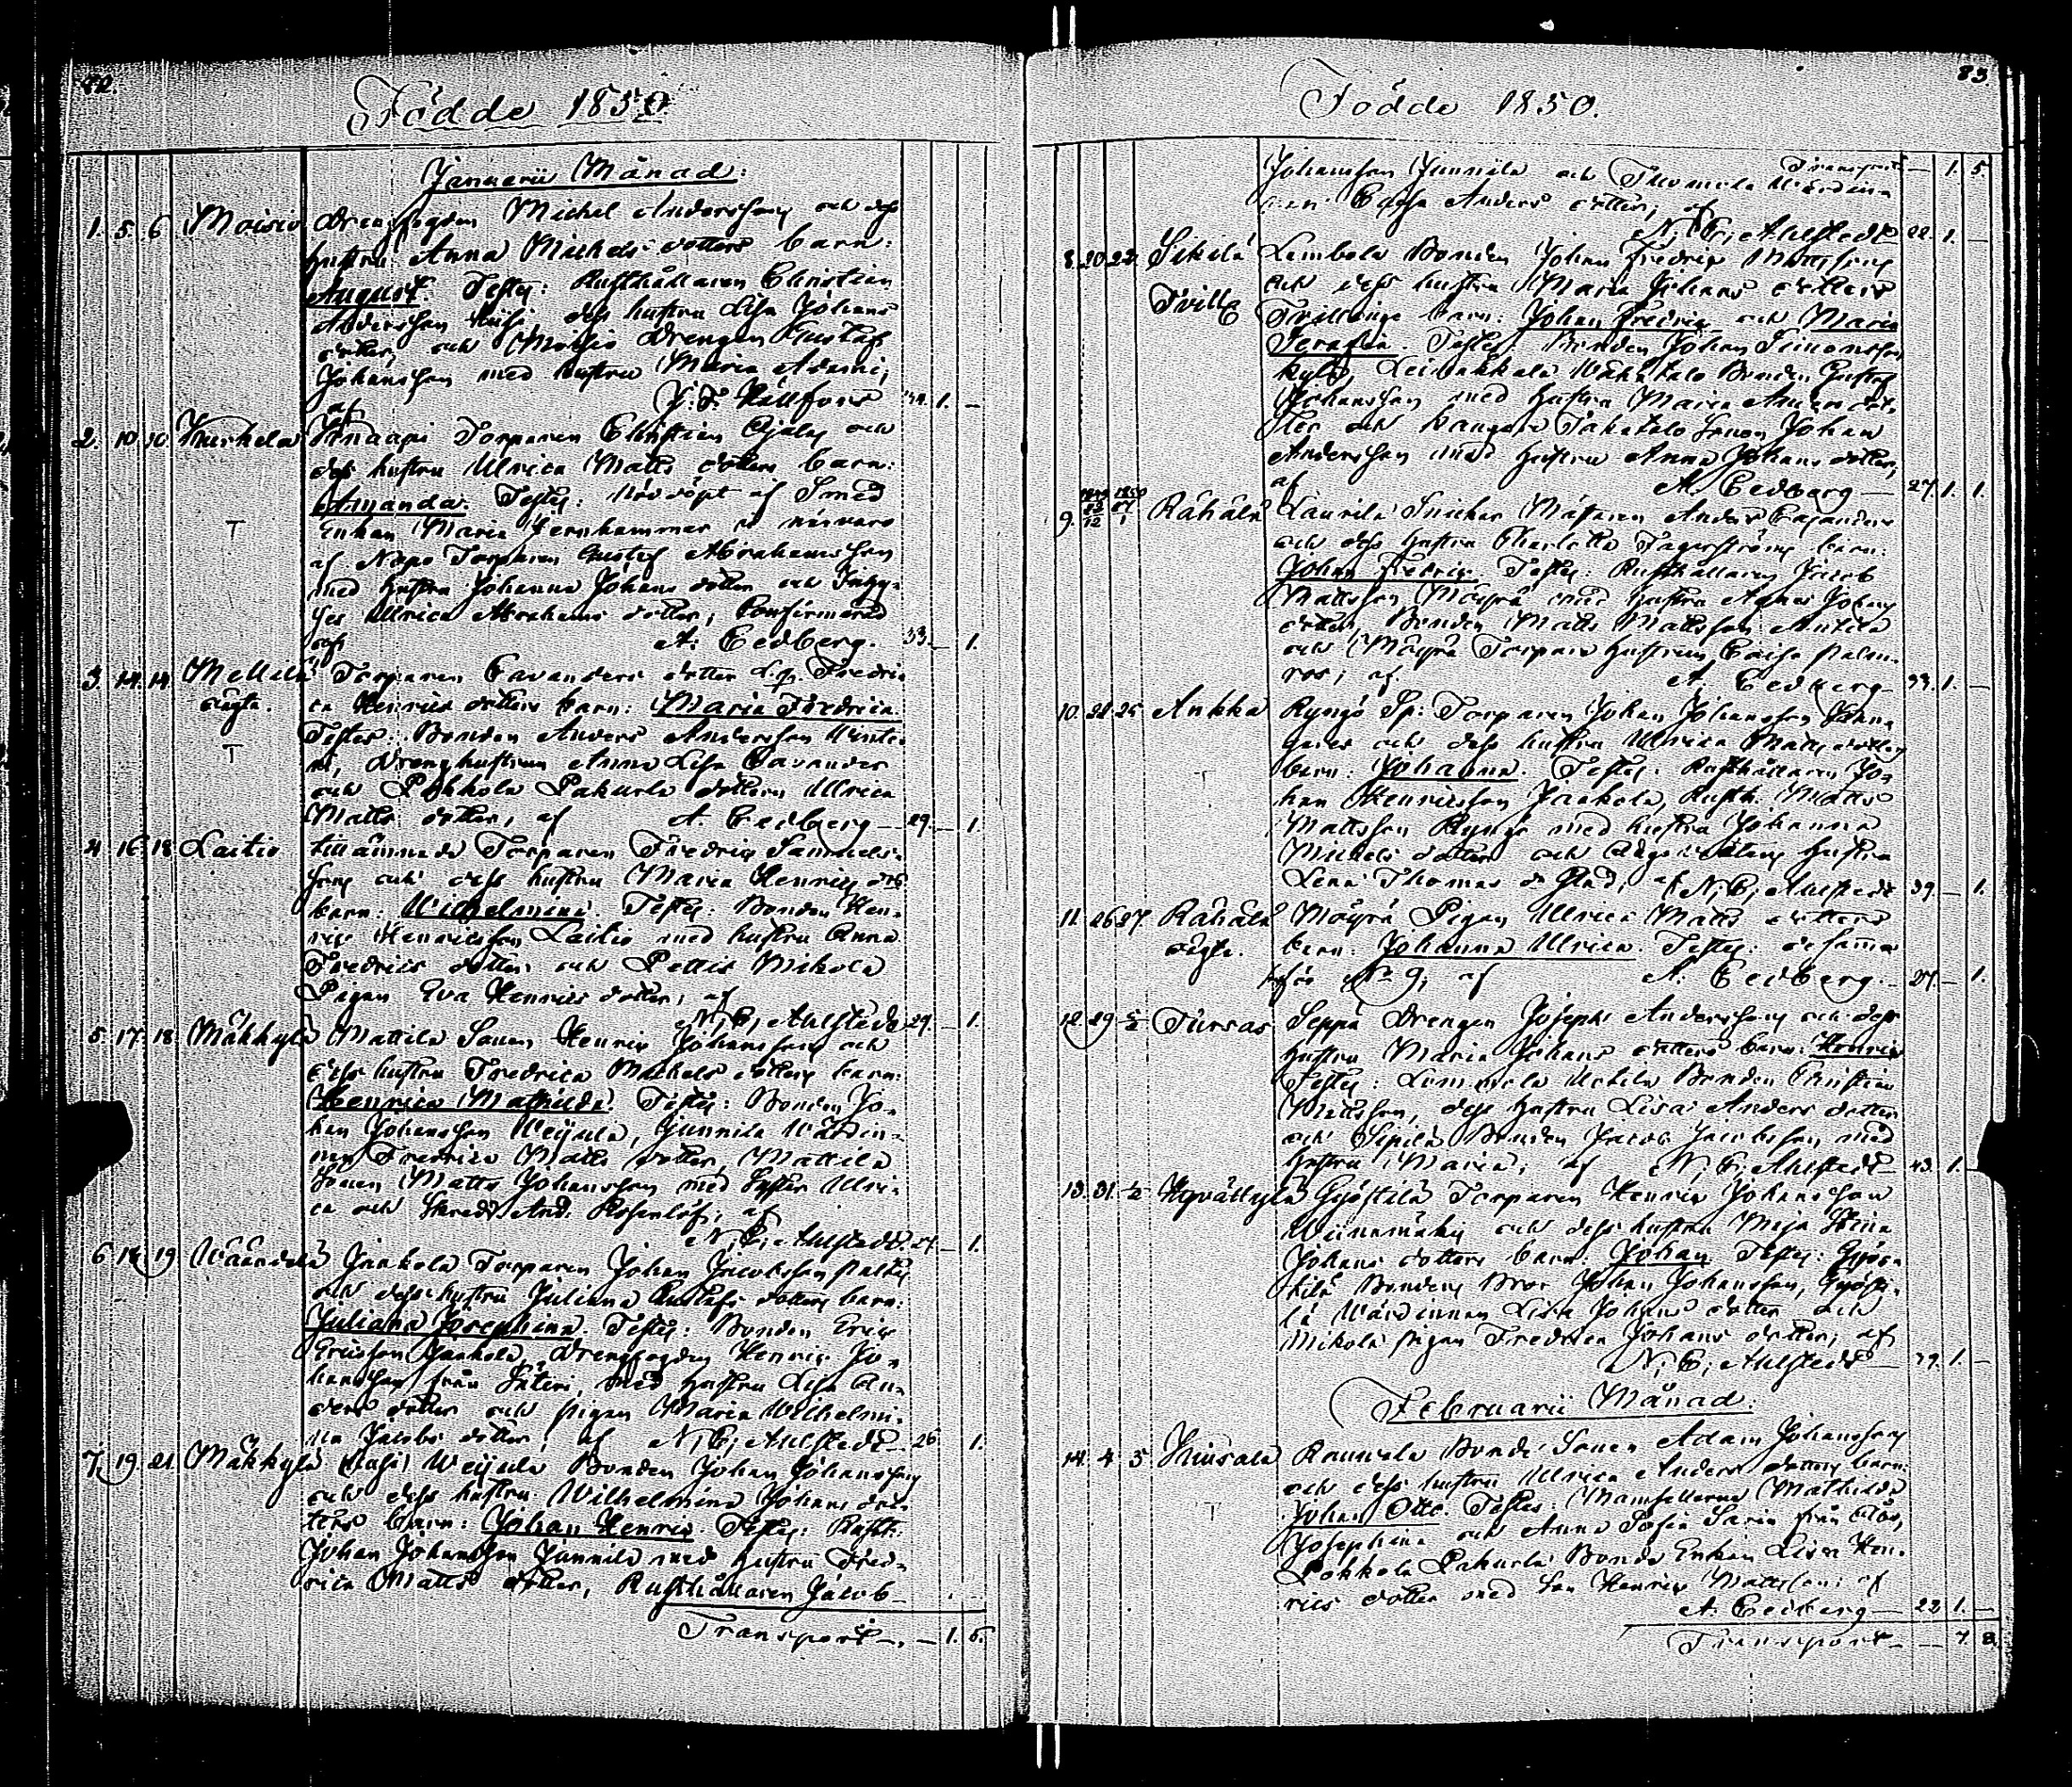 82.
Födde 1850.
Januarii Månad:
1. 5. 6 Moisio Drengfogden Michel Andersson och dess
hustru Anna Michels dotters barn:
August. Testes: Rusthållaren Christian
Andersson dess hustru Lisa Johans
dotter, och Moisio Drengen Gustaf
Johansson med hustru Maria Adami,
af J. F. Hällfors 34. 1. –
2. 10 10. Kurkela Torparen Christian och
dess hustru Ulrica Matts dotters barn:
Amanda. Testes: Nöddöpt af Smed
Enkan Maria Jernhammar i närvaro
af Nopo Torparen Gustaf Abrahamsson
med hustru Johanna Johans dotter och Inhy-
ses Ulrica Abrahams dotter; Confirmerad
af A: Cedberg. 33. – 1.
3. 14. 14. Mellilä Torparen Cavanders dotter Fredri-
oägta. ca Henrics dotters barn: Maria Fredrica.
Testes: Bonden Anders Andersson
Drenghustrun Anna Lisa Cavander
och Pokkola Pakurla dottern Ulrica
Matts dotter, af A. Cedberg – 29. – 1.
4 16 18 Laitio tillämnade Torparen Fredric Samuels-
son och dess hustru Maria Henrics dot
barn: Wilhelmina. Testes: Bonden Hen-
ric Henricsson Laitio med hustru Anna
Fredrics dotter och Pettis Mikola
Pigan Eva Henrics dotter; af
N; C; Ahlstedt 29. – 1.
5. 17. 18. Mäkkylä Mattila Sonen Henric Johansson och
dess hustru Fredrica Michels dotters barn:
Henrica Mathilda. Testes: Bonden Jo-
han Johansson Weijula, Junnila Wärdin-
nan Fredrica Matts dotter, Mattila
Sonen Matts Johansson med Syster Ulri-
ca och And: Rosenlöf; af
N; C; Ahlstedt. 27. – 1.
6 18 19 Wäändelä Jaakola Torparen Johan Jacobsson
och dess hustru Juliana Gustafs dotters barn:
Juliana Josephina. Testes: Bonden Eric
Ericsson Jaakola, Drengfogden Henric Jo-
hansson från Säteri, med hustru Lisa An-
ders dotter och pigan Maria Wilhelmi-
na Jacobs dotter; af N; C; Ahlstedt – 26 1.
7. 19. 21. Mäkkylä Weijula Bonden Johan Johansson
och dess hustru Wilhelmina Johans dot-
ters barn: Johan Henric. Testes: Rusth.
Johan Johansson Junnila med hustru Fred-
rica Matts dotter, Rusthållaren Jacob
Transport –. – 1. 5.
83.
Födde 1850.
Transport – 1. 5
Johansson Junnila och Tuomola Wärdin-
nan Caisa Anders dotter; af
N; C; Ahlstedt 22. 1. –
8. 20. 22. Sikilä Lembola Bonden Johan Fredric Mattsson
och dess hustru Maria Johans dotters
Tvill. Tvillinge barn: Johan Fredric och Maria
Serafia. Testes: Bonden Johan Simonsson
Leinakkala Wähätalo Bonden Gustaf
Johansson med hustru Maria Anders dot-
ter och Takatalo Sonen Johan
Andersson med hustru Anna Johans dotter,
af A. Cedberg – 27. 1. 1.
9. Rähälä Laurila Snickar Mästaren Anders Cajanders
och dess hustru Charlotta Fagerströms barn:
Johan Fredric. Testes: Rusthållaren Jacob
Mattsson Möyrä med hustru Agnes Johans
dotter, Bonden Matts Mattsson Anttila
och Möyrä Torpare hustrun Caisa Palm-
ros; af A. Cedberg – 33. 1. –
10. 24. 25 Ankka Ryngö Sp: Torparen Johan Johansson
och dess hustru Ulrica Matts dotters
barn: Johanna. Testes: Rusthållaren Jo-
han Henricsson Jaakola, Rusth. Matts
Mattsson Ryngö med hustru Johanna
Michels dotter och hustru
Lena Thomas d. af N; C; Ahlstedt 39. – 1.
11. 26 27. Rähälä Möyrä Pigan Ulrica Matts dotters
oägta. barn: Johanna Ulrica. Testes: desamma
för No 9; af A: Cedberg. – 27. – 1.
12. 29 2/2 Tursas Seppä Drengen Joseph Andersson och dess
hustru Maria Johans dotters barn: Henric
Testes: Bonden Christian
Mattsson, dess hustru Lisa Anders dotter
och Sepilä Bonden Jacob Jacobsson med
hustru Maria; af N; C; Ahlstedt – 43. 1. –
13. 31. 1/2 Hyvättylä Gjöstilä Torparen Henric Johansson
Wiinamäki och dess hustru Maja Stina
Johans dotters barn: Johan. Testes: Gjös-
tilä Bondens Bror Johan Johansson, Gjösti-
lä Wärdinnan Lisa Johans dotter och
Mikola pigan Fredrica Johans dotter; af
N; C; Ahlstedt – 39. 1. –
Februarii Månad:
14. 4. 5 Hiisala Bonde Sonen Adam Johansson
och dess hustru Ulrica Anders dotters barn:
Johan Otto. Testes: Mamsellerna Mathilda
Josephina och Anna Sofia från
Pokkola Pakurla Bonde Enkan Lisa Hen-
rics dotter med Son Henric Mattsson: af
A. Cedberg – 22 1. –
Transport – – 7. 8.